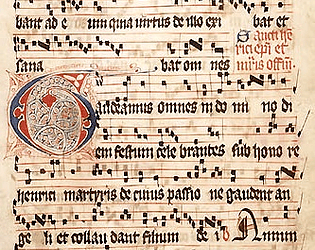 bant ad e um quia virtus de illo exi bat et
sana bat om nes
Sancti hen
rici epi et
mris
Gaudeamus omnes in do mi no di
em festum cele brantes sub hono re
henrici martyris de cuius passio ne gaudent an
ge li et collau dant filium de i